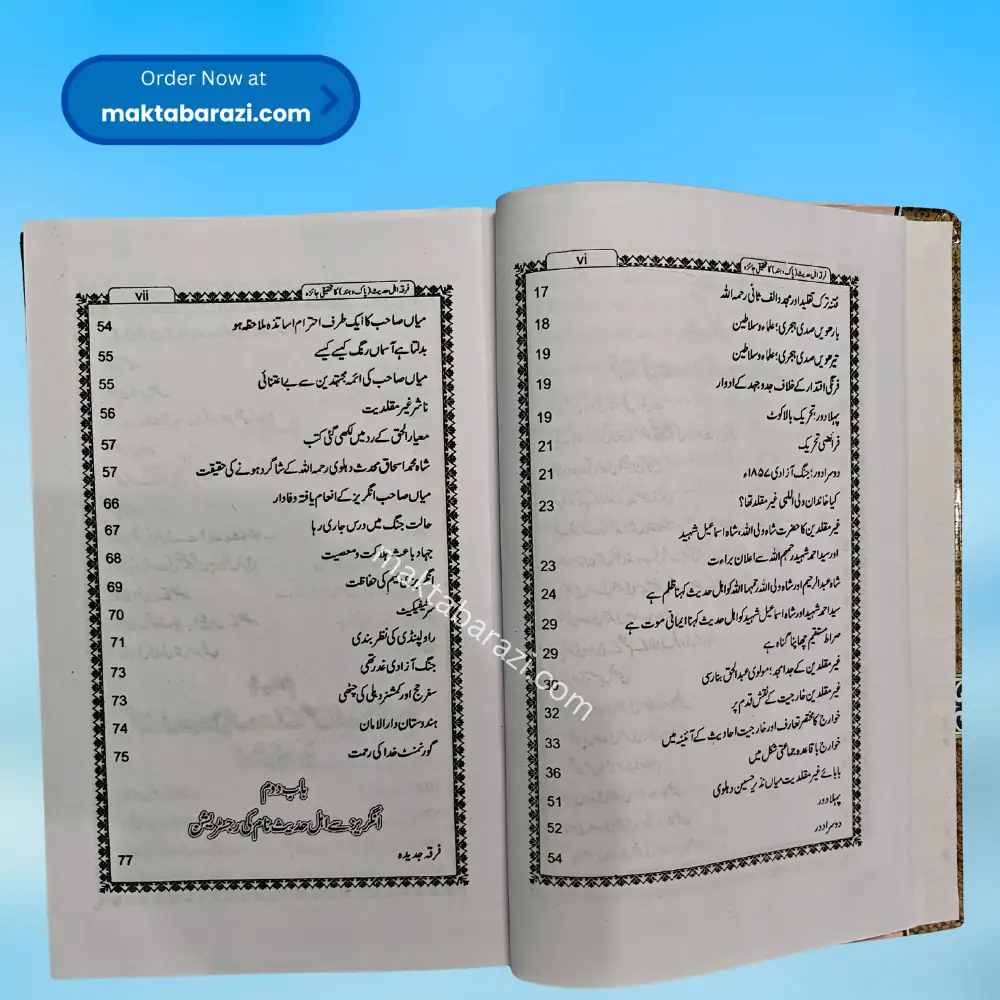 Order Now at
maktabarazi.com
vi
فرقہ اہل حدیث (پاک و ہند) کا تحقیقی جائزہ
فتنہ ترک تقلید اور مجدد الف ثانی رحمہ اللہ 17
بارھویں صدی ہجری؛ علماء و سلاطین 18
تیرھویں صدی ہجری؛ علماء و سلاطین 19
فرنگی اقتدار کے خلاف جدوجہد کے ادوار 19
پہلا دور؛ تحریک بالاکوٹ 19
فرائضی تحریک 21
دوسرا دور؛ جنگ آزادی ۱۸۵۷ء 21
کیا خاندان ولی اللہی غیر مقلد تھا؟ 23
غیر مقلدین کا حضرت شاہ ولی اللہ، شاہ اسماعیل شہید
اور سید احمد شہید رحمہم اللہ سے اعلان براءت 23
شاہ عبدالرحیم اور شاہ ولی اللہ رحمہما اللہ کو اہل حدیث کہنا ظلم ہے 24
سید احمد شہید اور شاہ اسماعیل شہید کو اہل حدیث کہنا ایمانی موت ہے 29
صراط مستقیم چھاپنا گناہ ہے 29
غیر مقلدین کے جد امجد؛ مولوی عبدالحق بنارسی 30
غیر مقلدین خارجیت کے نقش قدم پر 32
خوارج کا مختصر تعارف اور خارجیت احادیث کے آئینہ میں 33
خوارج باقاعدہ جماعتی شکل میں 36
بابائے غیر مقلدیت میاں نذیر حسین دہلوی 51
پہلا دور 52
دوسرا دور 54
vii
فرقہ اہل حدیث (پاک و ہند) کا تحقیقی جائزہ
میاں صاحب کا ایک طرف احترام اساتذہ ملاحظہ ہو 54
بدلتا ہے آسماں رنگ کیسے کیسے 55
میاں صاحب کی ائمہ مجتہدین سے بے اعتنائی 55
ناشر غیر مقلدیت 56
معیار الحق کے رد میں لکھی گئی کتب 57
شاہ محمد اسحاق محدث دہلوی رحمہ اللہ کے شاگرد ہونے کی حقیقت 57
میاں صاحب انگریز کے انعام یافتہ وفادار 66
حالت جنگ میں درس جاری رہا 67
جہاد باعث ہلاکت و معصیت 68
انگریزی میم کی حفاظت 69
سرٹیفکیٹ 70
راولپنڈی کی نظر بندی 71
جنگ آزادی غدر تھی 73
سفر حج اور کمشنر دہلی کی چٹھی 73
ہندوستان دارالامان 74
گورنمنٹ خدا کی رحمت 75
باب دوم
انگریز سے اہل حدیث نام کی رجسٹریشن
فرقہ جدیدہ 77
maktabarazi.com